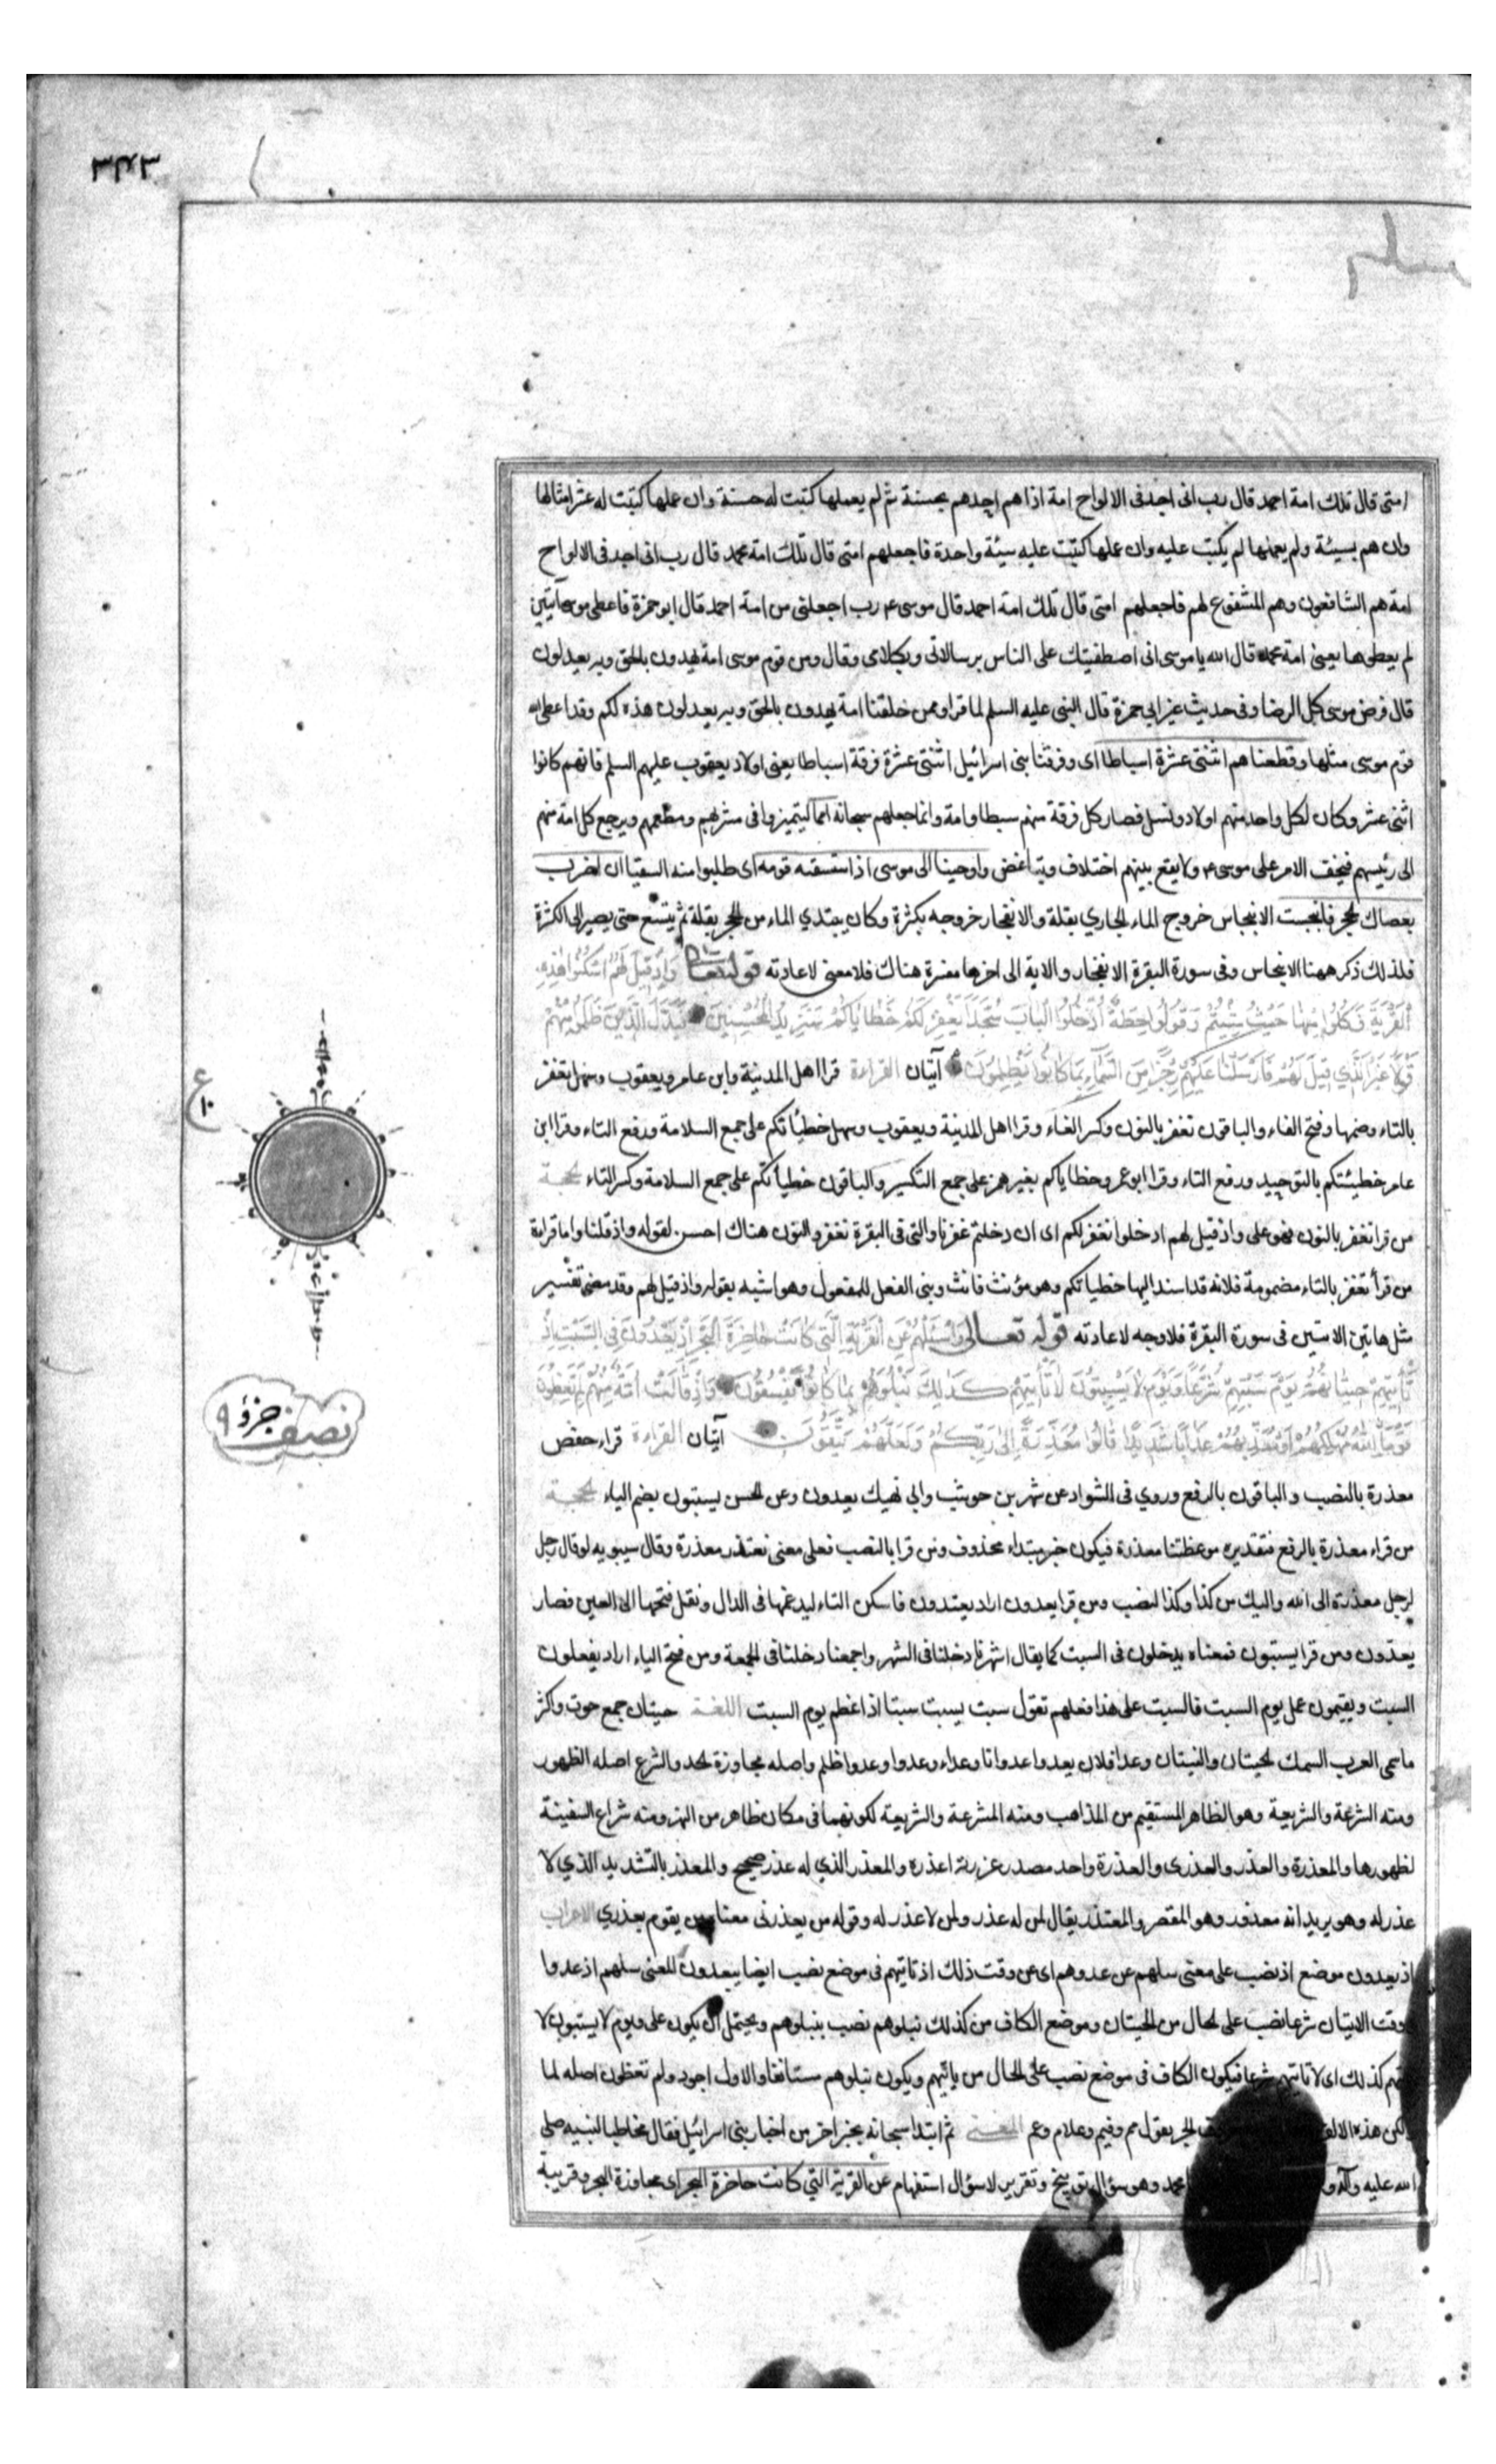 امتى قال تلك امة احمد قال رب انى اجد فى الالواح امة اذا هم احدهم بحسنة ثم لم يعملها كتبت له حسنة وان عملها كتبت له عشر امثالها
وان هم بسيئة ولم يعملها لم يكتب عليه وان عملها كتبت عليه سيئة واحدة فاجعلهم امتى قال تلك امة محمد قال رب انى اجد فى الالواح
امة هم الشافعون وهم المشفوع لهم فاجعلهم امتى قال تلك امة احمد قال موسى ع رب اجعلنى من امة احمد قال ابو حمزة فاعطى موسى آيتين
لم يعطوها يعنى امة محمد قال الله يا موسى انى اصطفيتك على الناس برسالاتى وبكلامى وقال ومن قوم موسى امة يهدون بالحق وبه يعدلون
قال فرضى موسى كل الرضا وفى حديث غير ابي حمزة قال النبى عليه السلم لما قرا وممن خلقنا امة يهدون بالحق وبه يعدلون هذه لكم وقد اعطى الله
قوم موسى مثلها وقطعناهم اثنتى عشرة اسباطا اى وفرقنا بنى اسرائيل اثنتى عشرة فرقة اسباطا يعنى اولاد يعقوب عليهم السلم فانهم كانوا
اثنى عشر وكان لكل واحد منهم اولاد ونسل فصار كل فرقة منهم سبطا وامة وانما جعلهم سبحانه امما ليتميزوا فى مشربهم ومطعمهم ويرجع كل امة منهم
الى رئيسهم فيخف الامر على موسى ع ولا يقع بينهم اختلاف وتباغض واوحينا الى موسى اذ استسقيه قومه اى طلبوا منه السقيا ان اضرب
بعصاك الحجر فانبجست الانبجاس خروج الماء الجاري بقلة والانفجار خروجه بكثرة وكان يبتدي الماء من الحجر بقلة ثم يتسع حتى يصير الى الكثرة
فلذلك ذكر ههنا الانبجاس وفى سورة البقرة الانفجار والاية الى اخرها مفسرة هناك فلا معنى لاعادته قوله تعالى وَاِذْ قِيلَ لَهُمُ اسْكُنُوا هٰذِهِ
الْقَرْيَةَ وَكُلُوا مِنْهَا حَيْثُ شِئْتُمْ وَقُولُوا حِطَّةٌ وَادْخُلُوا الْبَابَ سُجَّدًا نَغْفِرْ لَكُمْ خَطَايَاكُمْ سَنَزِيدُ الْمُحْسِنِينَ فَبَدَّلَ الَّذِينَ ظَلَمُوا مِنْهُمْ
قَوْلًا غَيْرَ الَّذِي قِيلَ لَهُمْ فَاَرْسَلْنَا عَلَيْهِمْ رِجْزًا مِنَ السَّمَآءِ بِمَا كَانُوا يَظْلِمُونَ آيتان القراءة قرا اهل المدينة وابن عامر ويعقوب وسهل تغفر
بالتاء وضمها وفتح الفاء والباقون نغفر بالنون وكسر الفاء وقرا اهل المدينة ويعقوب وسهل خطيئاتكم على جمع السلامة ورفع التاء وقرا ابن
عامر خطيئتكم بالتوحيد ورفع التاء وقرا ابو عمرو خطاياكم بغير همز على جمع التكسير والباقون خطيأتكم على جمع السلامة وكسر التاء الحجة
من قرا نغفر بالنون فهو على واذ قيل لهم ادخلوا نغفر لكم اى ان دخلتم غفرنا والتى فى البقرة نغفر والنون هناك احسن لقوله واذ قلنا واما قراءة
من قرأ تغفر بالتاء مضمومة فلانه قد اسند اليها خطياتكم وهو مؤنث فانث وبنى الفعل للمفعول وهو اشبه بقوله واذ قيل لهم وقد مضى تفسير
مثل هاتين الايتين فى سورة البقرة فلا وجه لاعادته قوله تعالى وَاسْئَلْهُمْ عَنِ الْقَرْيَةِ الَّتِي كَانَتْ حَاضِرَةَ الْبَحْرِ اِذْ يَعْدُونَ فِى السَّبْتِ اِذْ
تَأْتِيهِمْ حِيتَانُهُمْ يَوْمَ سَبْتِهِمْ شُرَّعًا وَيَوْمَ لَا يَسْبِتُونَ لَا تَأْتِيهِمْ كَذٰلِكَ نَبْلُوهُمْ بِمَا كَانُوا يَفْسُقُونَ وَاِذْ قَالَتْ اُمَّةٌ مِنْهُمْ لِمَ تَعِظُونَ
قَوْمًا اللّٰهُ مُهْلِكُهُمْ اَوْ مُعَذِّبُهُمْ عَذَابًا شَدِيدًا قَالُوا مَعْذِرَةً اِلٰى رَبِّكُمْ وَلَعَلَّهُمْ يَتَّقُونَ آيتان القراءة قراء حفص
معذرة بالنصب والباقون بالرفع وروي فى الشواد عن شهر بن حوشب وابي نهيك يعدون وعن الحسن يسبتون بضم الياء الحجة
من قراء معذرة بالرفع فتقديره موعظتنا معذرة فيكون خبر مبتداء محذوف ومن قرا بالنصب فعلى معنى نعتذر معذرة وقال سيبويه لو قال رجل
لرجل معذرة الى الله واليك من كذا وكذا لنصب ومن قرا يعدون اراد يعتدون فاسكن التاء ليدغمها فى الدال ونقل فتحها الى العين فصار
يعدون ومن قرا يسبتون فمعناه يدخلون فى السبت كما يقال اشهرنا دخلنا فى الشهر واجمعنا دخلنا فى الجمعة ومن فتح الياء اراد يفعلون
السبت ويقيمون عمل يوم السبت فالسبت على هذا فعلهم تقول سبت يسبت سبتا اذا عظم يوم السبت اللغة حيتان جمع حوت واكثر
ما سمى العرب السمك الحيتان والنينان وعدا فلان يعدوا عدوانا وعداء وعدوا وعدوا ظلم واصله مجاوزة الحد والشرع اصله الظهور
ومنه الشرعة والشريعة وهو الظاهر المستقيم من المذاهب ومنه المشرعة والشريعة لكونهما فى مكان ظاهر من النهر ومنه شراع السفينة
لظهورها والمعذرة والعذر والعذرى والعذرة واحد مصدر عزرته اعذره والمعذر الذي له عذر صحيح والمعذر بالتشديد الذي لا
عذر له وهو يريد انه معذور وهو المقصر والمعتذر يقال لمن له عذر ولمن لا عذر له وقوله من يعذرنى معناه من يقوم بعذري الاعراب
اذ يعدون موضع اذ نصب على معنى سلهم عن عدوهم اى عن وقت ذلك اذ تاتيهم فى موضع نصب ايضا بيعدون المعنى سلهم اذ عدوا
وقت الاتيان شرعا نصب على الحال من الحيتان وموضع الكاف من كذلك نبلوهم نصب بنبلوهم ويحتمل ان يكون على ويوم لا يسبتون لا
كذلك اى لا تاتيهم شرعا فيكون الكاف فى موضع نصب على الحال من ياتيهم ويكون نبلوهم مستانفا والاول اجود ولم تعظون اصله لما
ولكن هذه الالف الجر يقول مم وفيم وعلام وعم المعنى ثم ابتدا سبحانه بخبر اخر من اخبار بنى اسرائيل فقال مخاطبا لنبيه صلى
الله عليه وآله و محمد وهو سؤال توبيخ وتقرير لا سؤال استفهام عن القرية التى كانت حاضرة البحر اى مجاوزة البحر وقريبة
ع
١٠
نصف جزؤ ٩